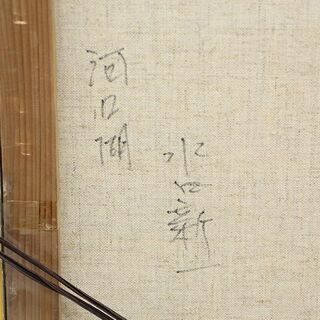 河口湖
水口新一